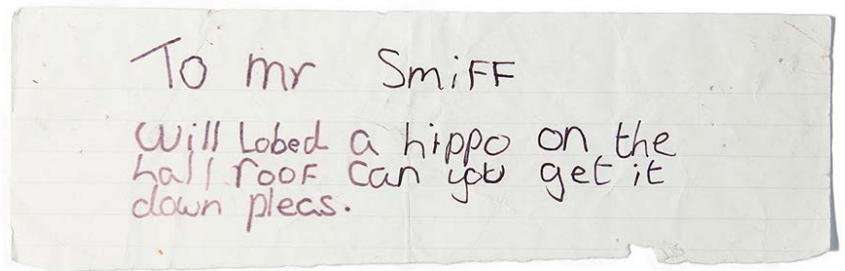 To mr SmiFF
Will Lobed a hippo on the
hall rooF can you get it
down pleas.